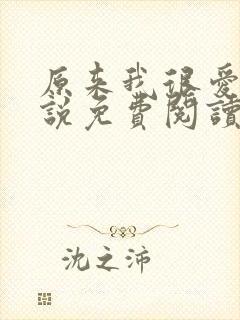 原来我很爱
説免費閱讀
沈之沛